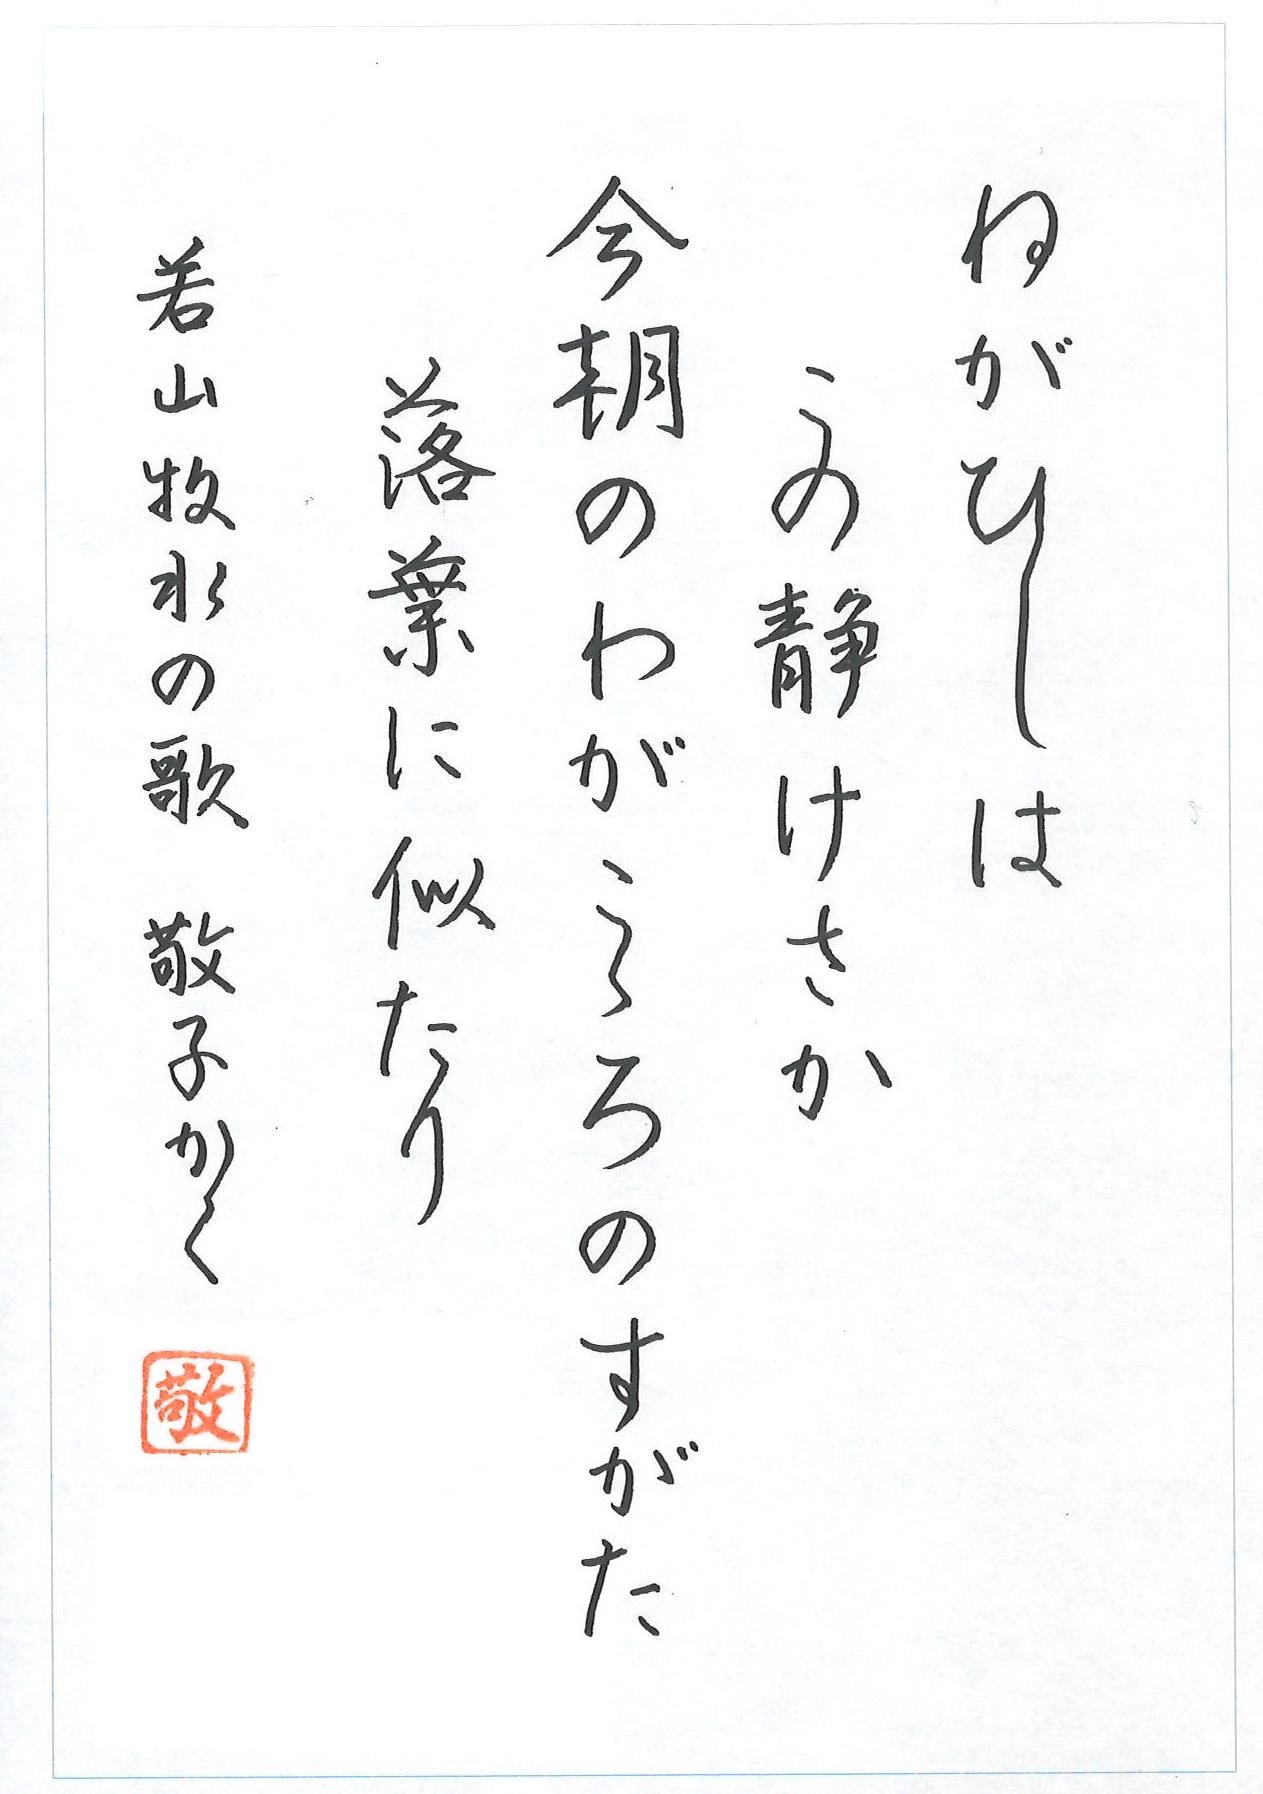 ねがひしは
この静けさか
今朝のわがこころのすがた
落葉に似たり
若山牧水の歌 敬子かく
敬